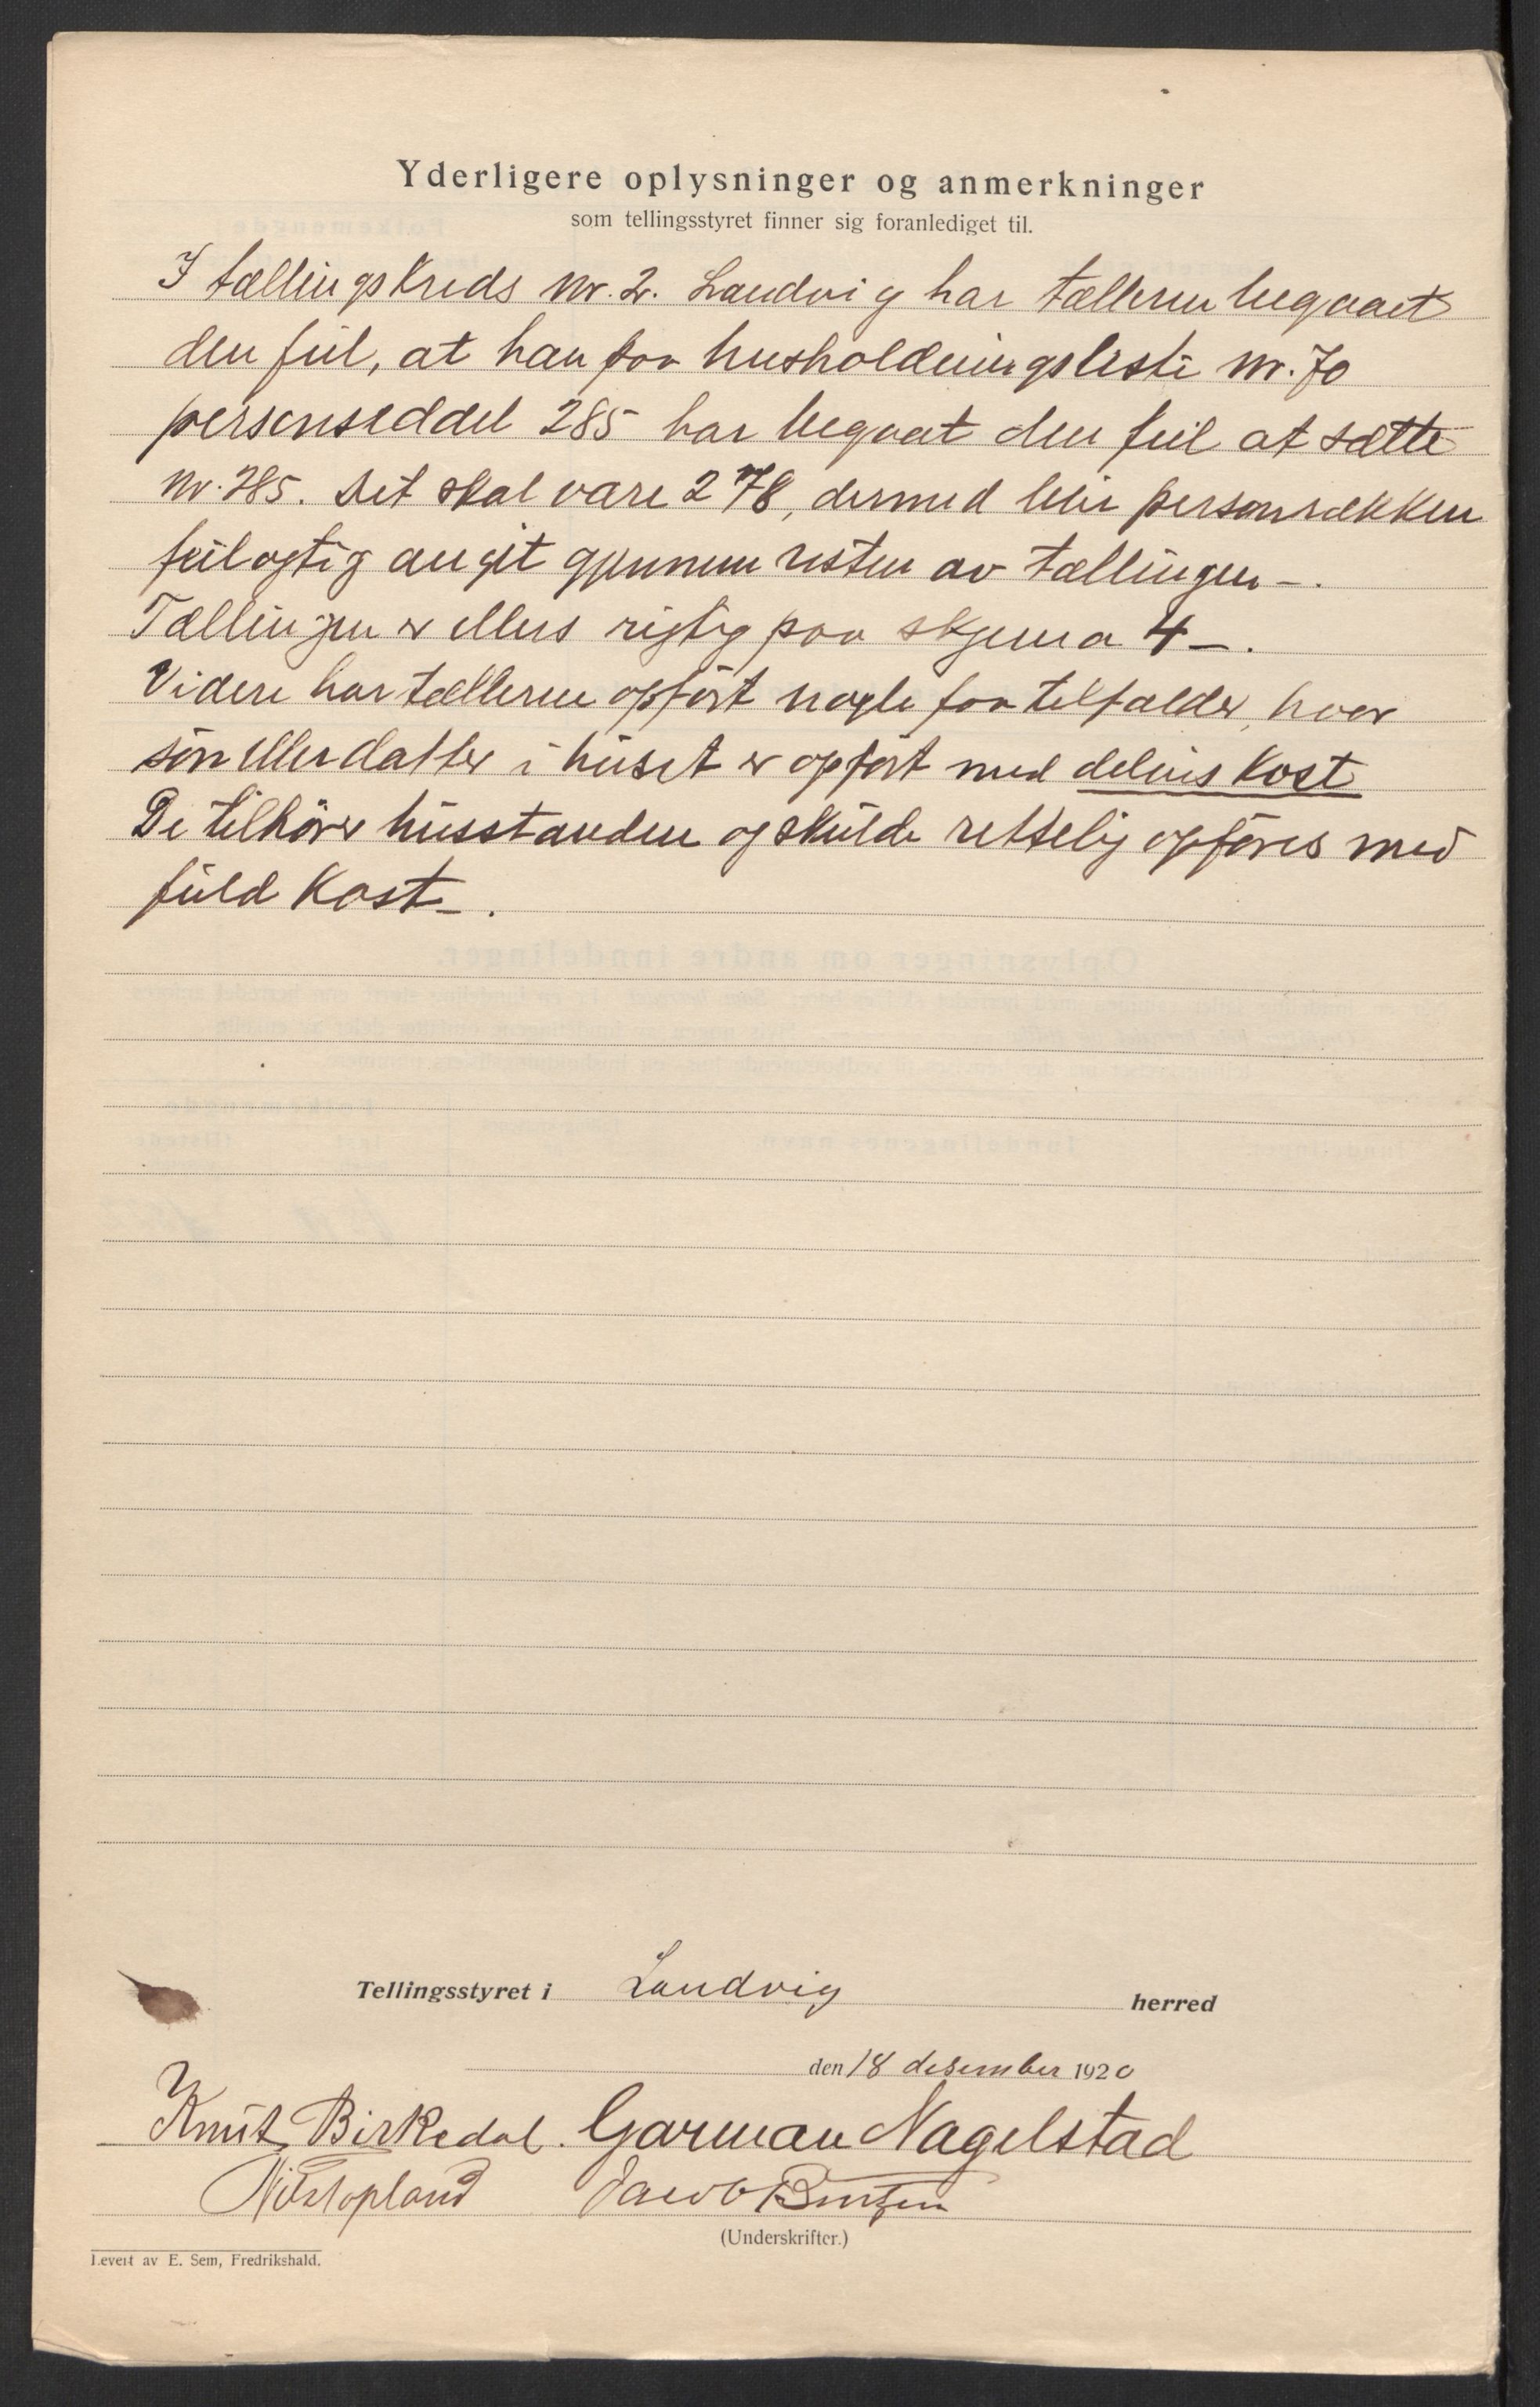 Yderligere oplysninger og anmerkninger
som tellingsstyret finner sig foranlediget til.
I tællingskreds nr. 2. Landvig har tælleren begaaet
den feil, at han paa husholdningsliste nr. 70
personseddel 285 har begaat den feil at sætte
nr. 285. Det skal være 278, dermed blir personrækken
feilagtig angit gjennem resten av tællingen –.
Tællingen er ellers rigtig paa skjema 4 –.
Videre har tælleren opført nogle faa tilfælder, hvor
søn eller datter i huset er opført med delvis kost
De tilhører husstanden og skulde rettelig opføres med
fuld kost –.
Tellingsstyret i Landvig herred
den 18 desember 1920
Knut Birkedal. Garman Nagelstad
Nils Jacob
(Underskrifter.)
Levert av E. Sem, Fredrikshald.